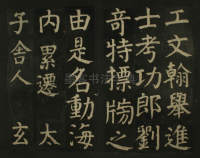 工文翰舉進
士考功郎劉
奇特標牓之
由是名動海
内累遷太
子舍人玄